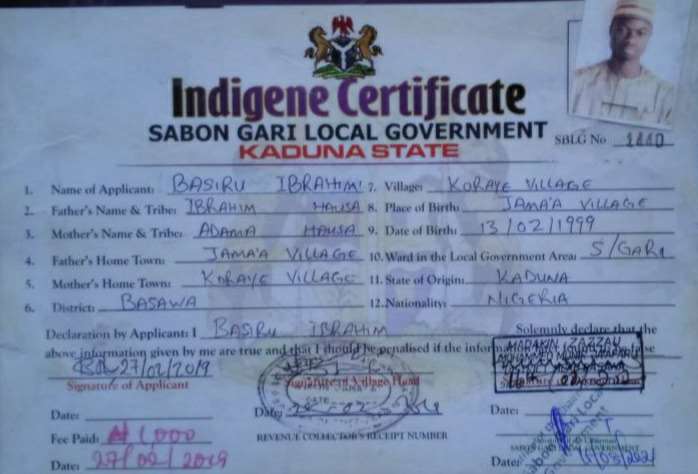 Indigene Certificate
SABON GARI LOCAL GOVERNMENT
KADUNA STATE
SBLG No 1440
1. Name of Applicant: BASIRU IBRAHIM 7. Village: KORAYE VILLAGE
2. Father's Name & Tribe: IBRAHIM HAUSA 8. Place of Birth: JAMA'A VILLAGE
3. Mother's Name & Tribe: ADAMA HAUSA 9. Date of Birth: 13/02/1999
4. Father's Home Town: JAMA'A VILLAGE 10. Ward in the Local Government Area: S/GARI
5. Mother's Home Town: KORAYE VILLAGE 11. State of Origin: KADUNA
6. District: BASAWA 12. Nationality: NIGERIA
Declaration by Applicant: I BASIRU IBRAHIM Solemnly declare that the
above information given by me are true and that I should be penalised if the
27/02/2019
Signature of Applicant Signature of Village Head
Date: Date: Date:
Fee Paid: ₦1,000 REVENUE COLLECTOR'S RECEIPT NUMBER
Date: 27/02/2019 Date: